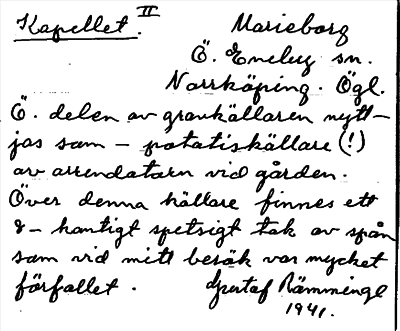 Kapellet. II
Marieborg
Ö. Eneby sn.
Norrköping. Ögl.
Ö. delen av gravkällaren nytt-
jas som - potatiskällare (!)
av arrendatorn vid gården.
Över denna källare finnes ett
8-kantigt spetsigt tak av spån
som vid mitt besök var mycket
förfallet.
Gustaf Rämminge
1941.